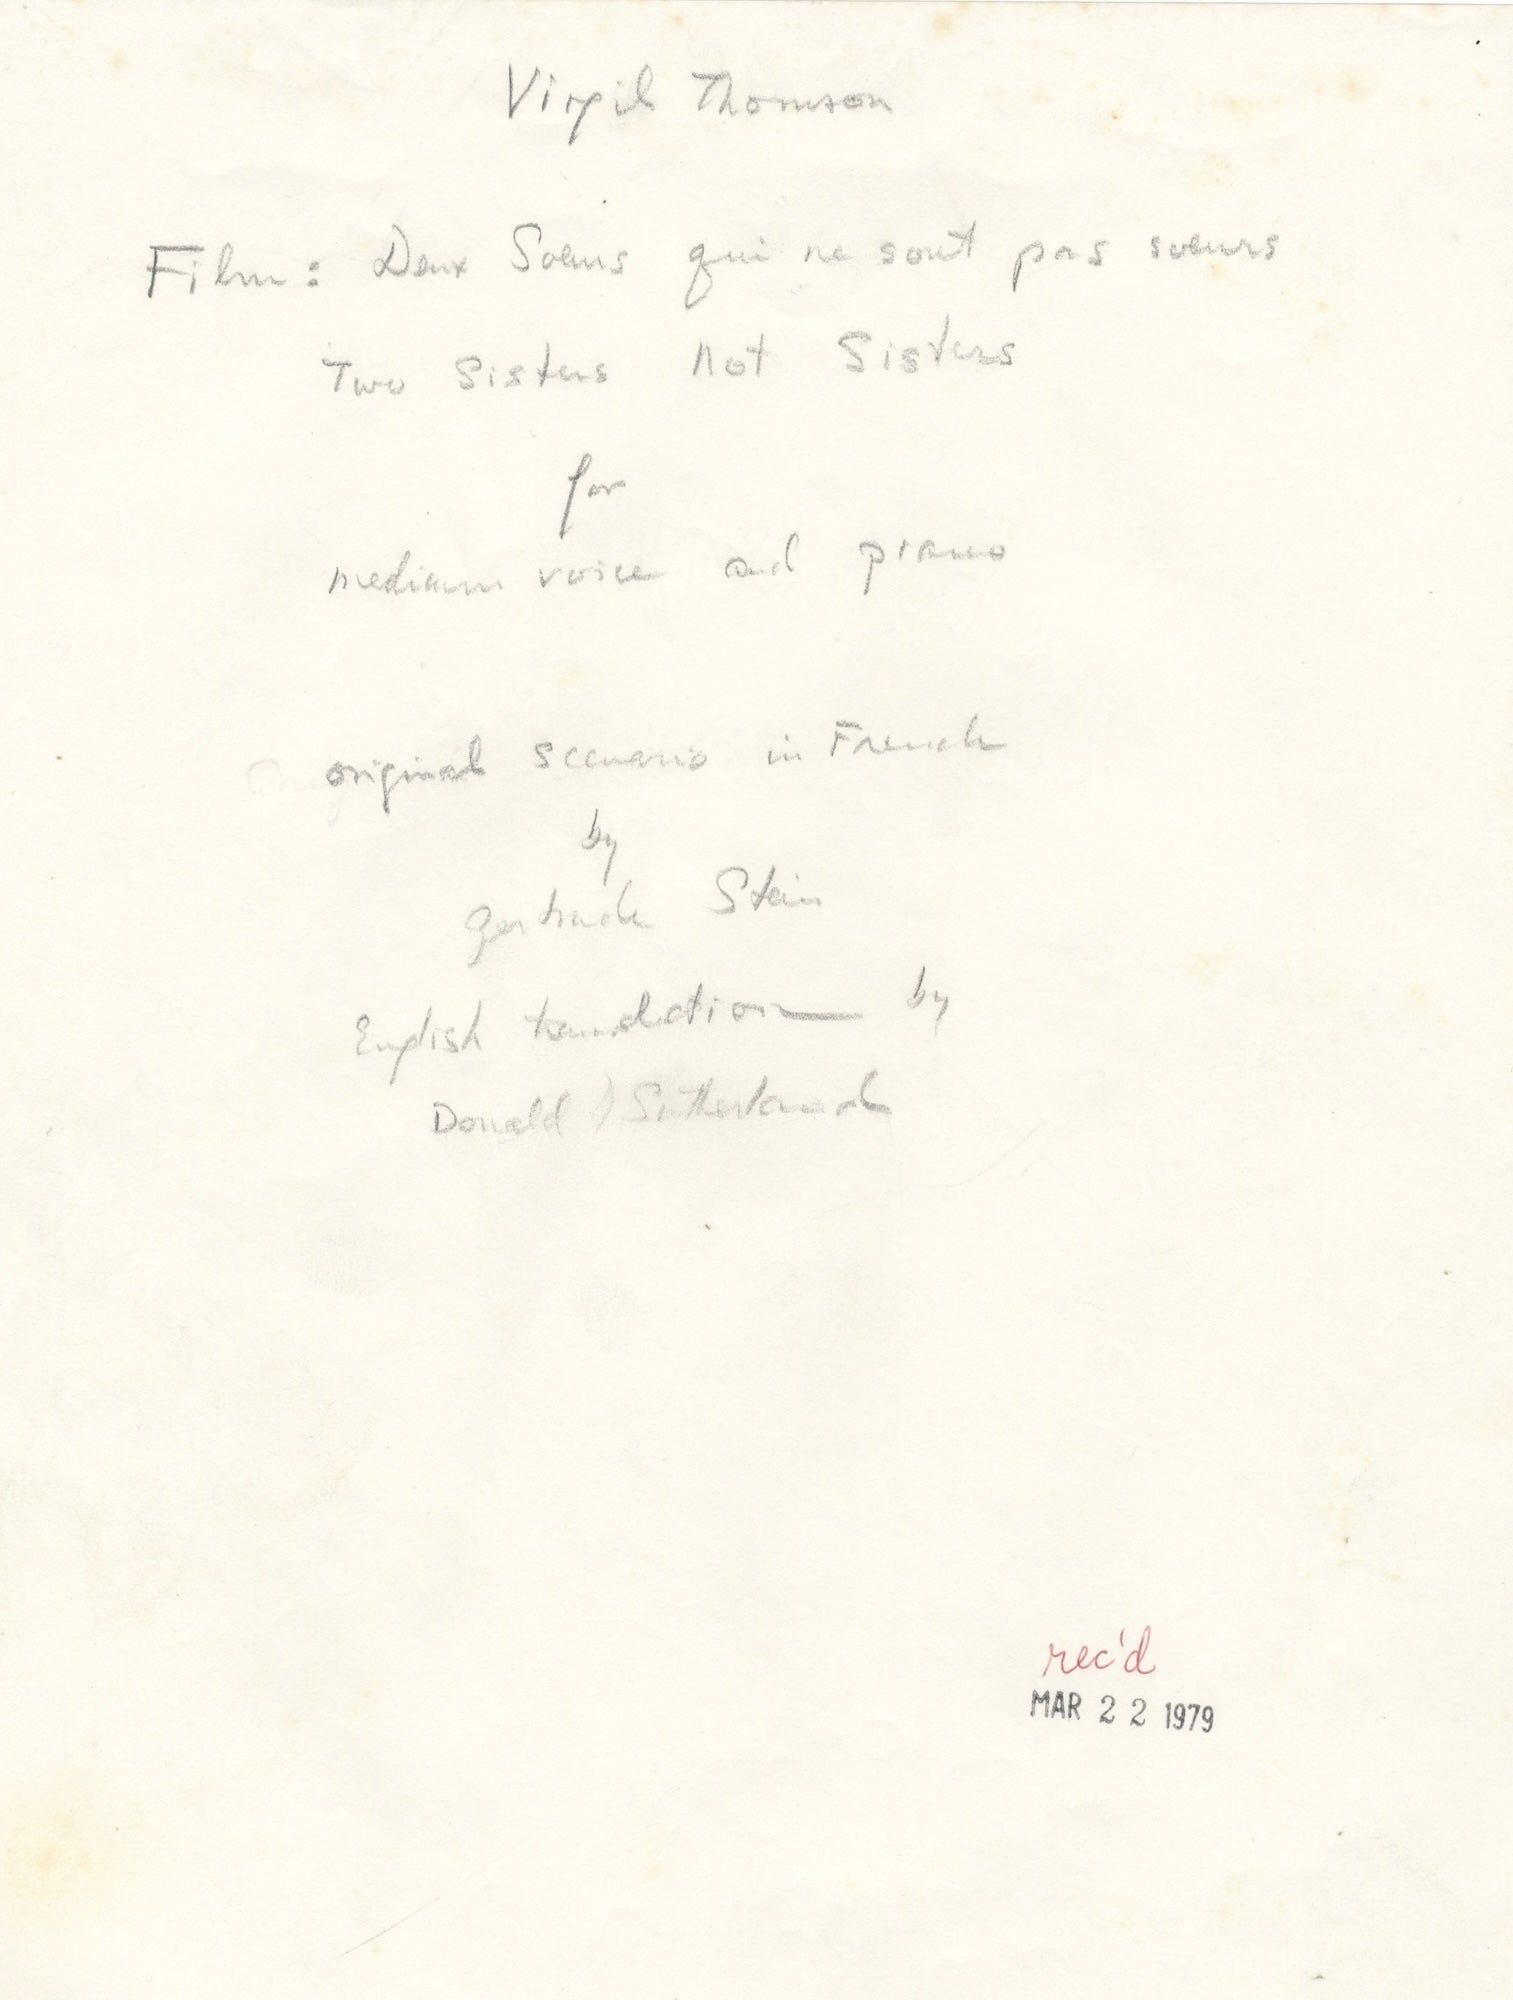 Virgil Thomson
Film: Deux Soeurs qui ne sont pas soeurs
Two Sisters Not Sisters
for
medium voice and piano
original scenario in French
by
Gertrude Stein
English translation by
Donald Sutherland
rec'd
MAR 22 1979